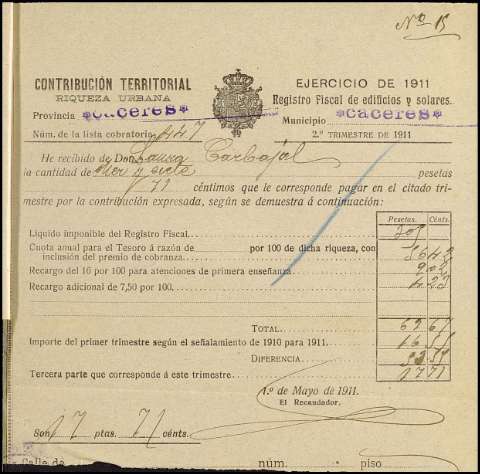 Nº 15
CONTRIBUCIÓN TERRITORIAL
RIQUEZA URBANA
Provincia *CACERES*
Núm. de la lista cobratoria 447
EJERCICIO DE 1911
Registro Fiscal de edificios y solares.
Municipio *CACERES*
2.º TRIMESTRE DE 1911
He recibido de Don Laura Carbajal
la cantidad de diez y siete pesetas
y 71 céntimos que le corresponde pagar en el citado tri-
mestre por la contribución expresada, según se demuestra á continuación:
Pesetas. Cénts.
Líquido imponible del Registro Fiscal
Cuota anual para el Tesoro á razón de por 100 de dicha riqueza, con
inclusión del premio de cobranza. 56 42
Recargo del 16 por 100 para atenciones de primera enseñanza 9 02
Recargo adicional de 7,50 por 100. 4 23
TOTAL
Importe del primer trimestre según el señalamiento de 1910 para 1911.
DIFERENCIA
Tercera parte que corresponde á este trimestre. 17 71
1.º de Mayo de 1911.
El Recaudador.
Son 17 ptas. 71 cénts.
Calle de núm. piso